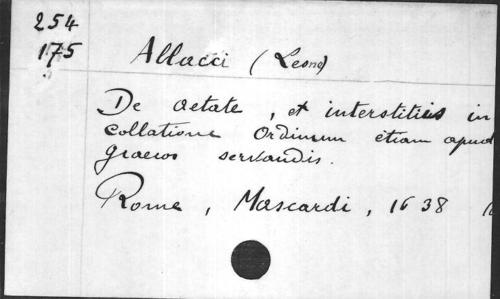 254
175
Allacci (Leone)
De aetate, et interstitiis in
collatione ordinum etiam apud
graecos servandis.
Rome, Mascardi, 1638